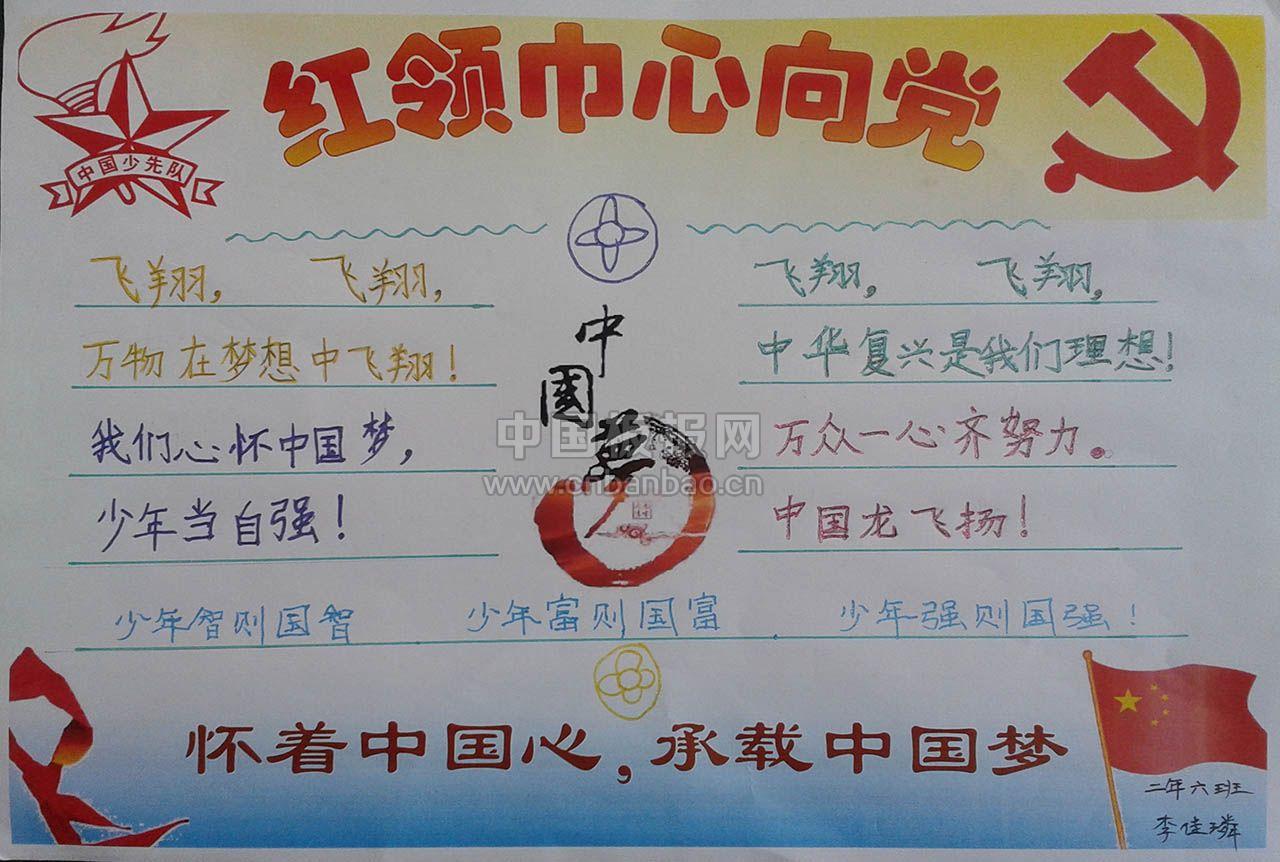 红领巾心向党
中国少先队
飞翔， 飞翔，
万物在梦想中飞翔！
我们心怀中国梦，
少年当自强！
飞翔， 飞翔，
中华复兴是我们理想！
万众一心齐努力。
中国龙飞扬！
中
国
梦
中国板报网
www.cnbanbao.cn
少年智则国智 少年富则国富 少年强则国强！
怀着中国心，承载中国梦
二年六班
李佳璘